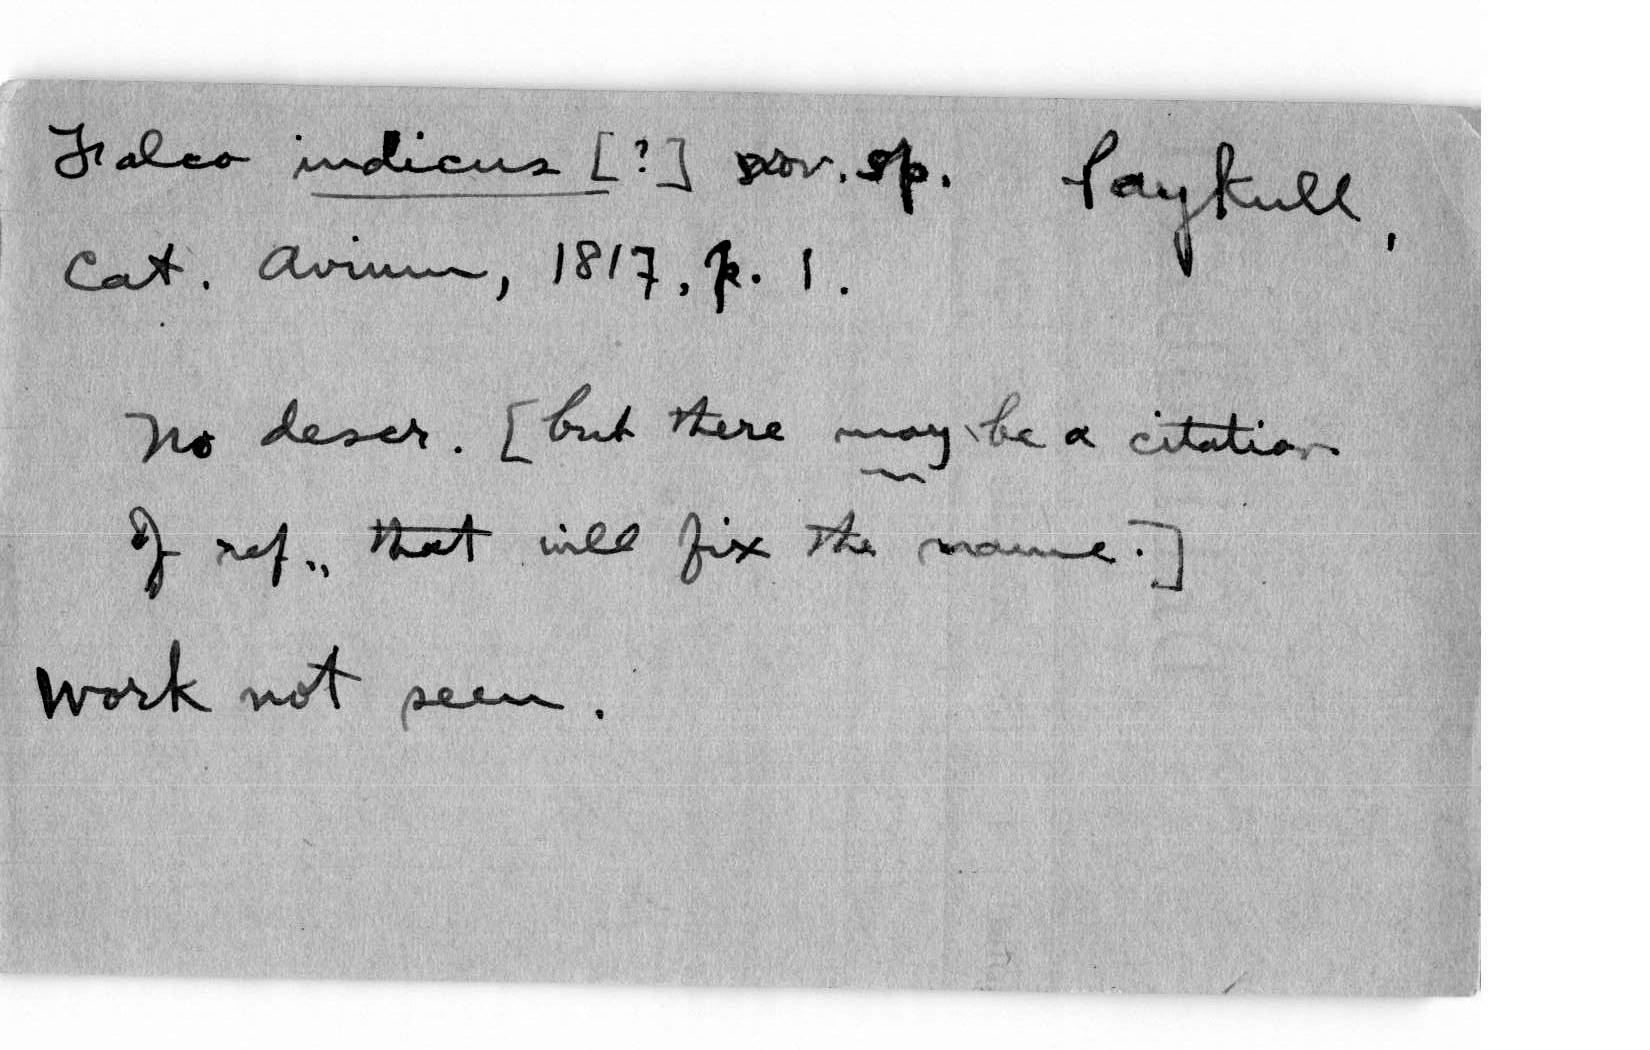 Falco indicus [?] nov. sp. Paykull,
Cat. Avium, 1817, p. 1.
No descr. [but there may be a citation
of ref., that will fix the name.]
Work not seen.